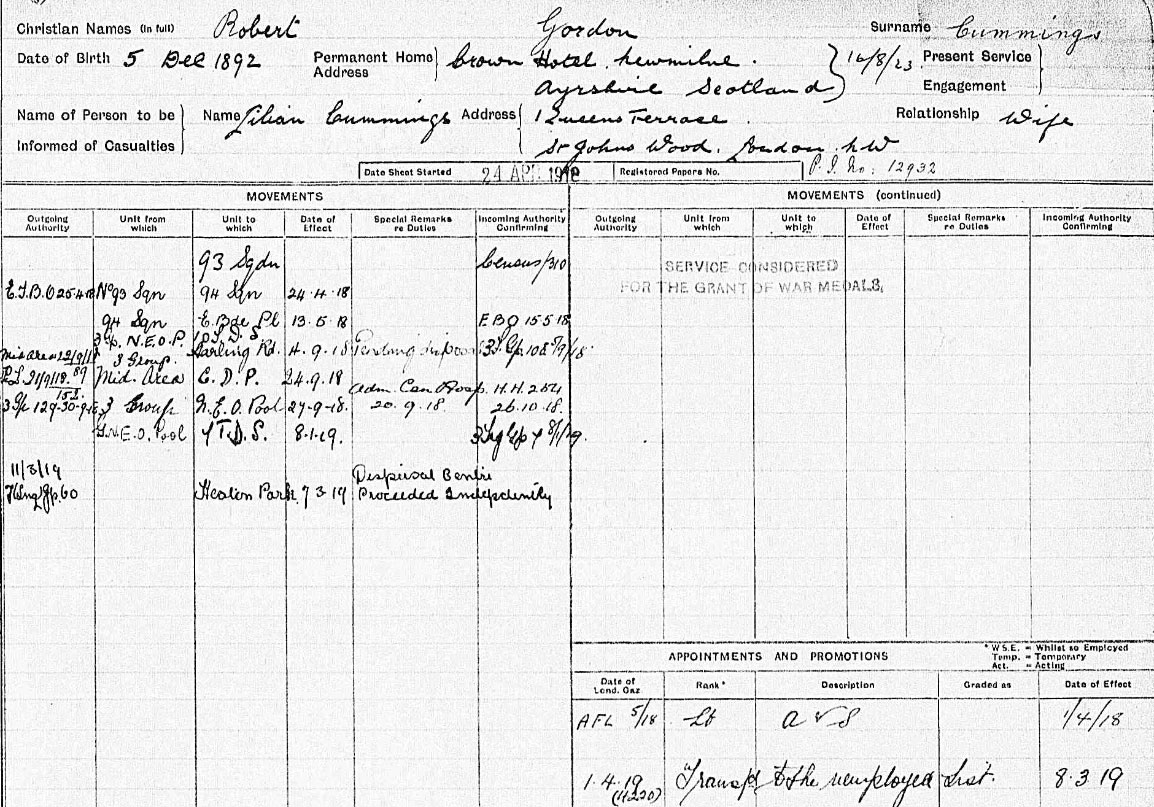 Christian Names (in full) Robert Gordon Surname Cummings
Date of Birth 5 Dec 1892 Permanent Home Address Crown Hotel Newmilns. 16/8/23 Present Service
Ayrshire Scotland Engagement
Name of Person to be Informed of Casualties Name Lilian Cummings Address 1 Queens Terrace Relationship Wife
St Johns Wood. London. N.W
Date Sheet Started 24 APR 1918 Registered Papers No. P.I. No: 12932
MOVEMENTS
Outgoing Authority Unit from which Unit to which Date of Effect Special Remarks re Duties Incoming Authority Confirming
93 Sqdn Census/310
E.I.B.O 25.4.18 No 93 Sqn 94 Sqn 24.4.18
94 Sqn E. Bde Pl 13.5.18 E.B.O 15.5.18
3 Gp. N.E.O.P. 10 T.D.S.
Mid Area 12/9/18 3 Group. Harling Rd. 4.9.18 Pending disposal 3 T.Gp. 108 5/9/18
Mid. Area E.D.P. 24.9.18
Adm. Can Hosp. H.H. 254
3 Gp 129.30.9.18 3 Group N.E.O. Pool 27.9.18. 20.9.18. 26.10.18.
N.E.O. Pool 4 T.D.S. 8.1.19. 8/1/19.
11/3/19 Dispersal Centre
60 Heaton Park 7.3.19 Proceeded Independently
MOVEMENTS (continued)
Outgoing Authority Unit from which Unit to which Date of Effect Special Remarks re Duties Incoming Authority Confirming
SERVICE CONSIDERED
FOR THE GRANT OF WAR MEDALS.
APPOINTMENTS AND PROMOTIONS
* W.S.E. = Whilst so Employed
Temp. = Temporary
Act. = Acting
Date of Lond. Gaz Rank* Description Graded as Date of Effect
AFL 5/18 Lt A & S 1/4/18
1.4.19 Transfd to the unemployed List. 8.3.19
(4220)